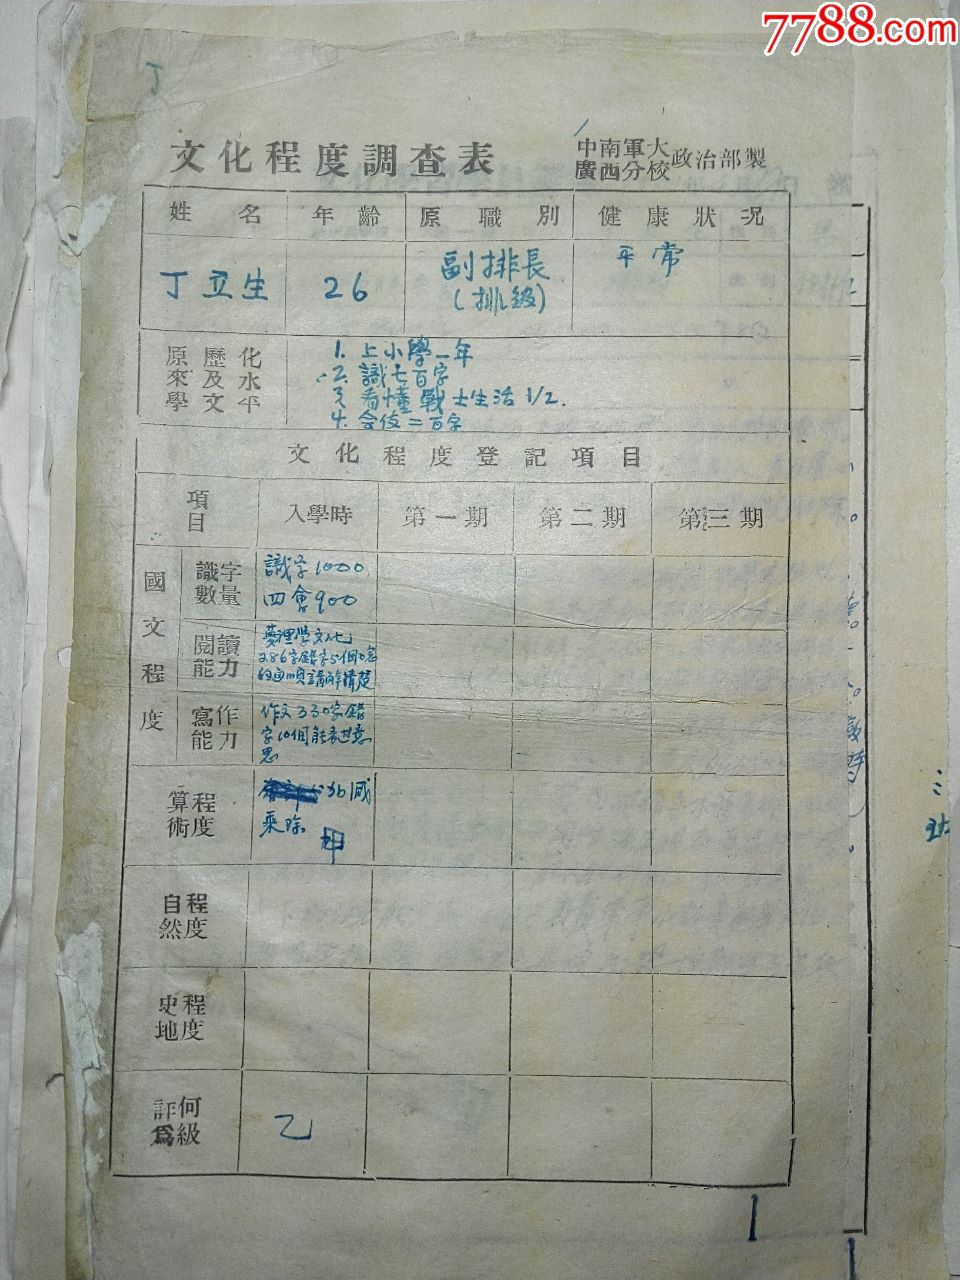 7788.com
丁
文化程度調查表
中南軍大
廣西分校
政治部製
姓名 年齡 原職別 健康狀況
丁卫生 26 副排長 平常
(排級)
原來學歷及文化水平
1. 上小學一年
2. 識七百字
3. 看懂戰士生活1/2.
4. 会伎二百字
文化程度登記項目
項目 入學時 第一期 第二期 第三期
國文程度
識字數量
識字1000
四會900
閱讀能力
整理學文化
286字錯字5個唸
的通順講解清楚
寫作能力
作文330字錯
字10個能表达意
思
算術程度
加減
乘除 甲
自然程度
史地程度
評為何級 乙